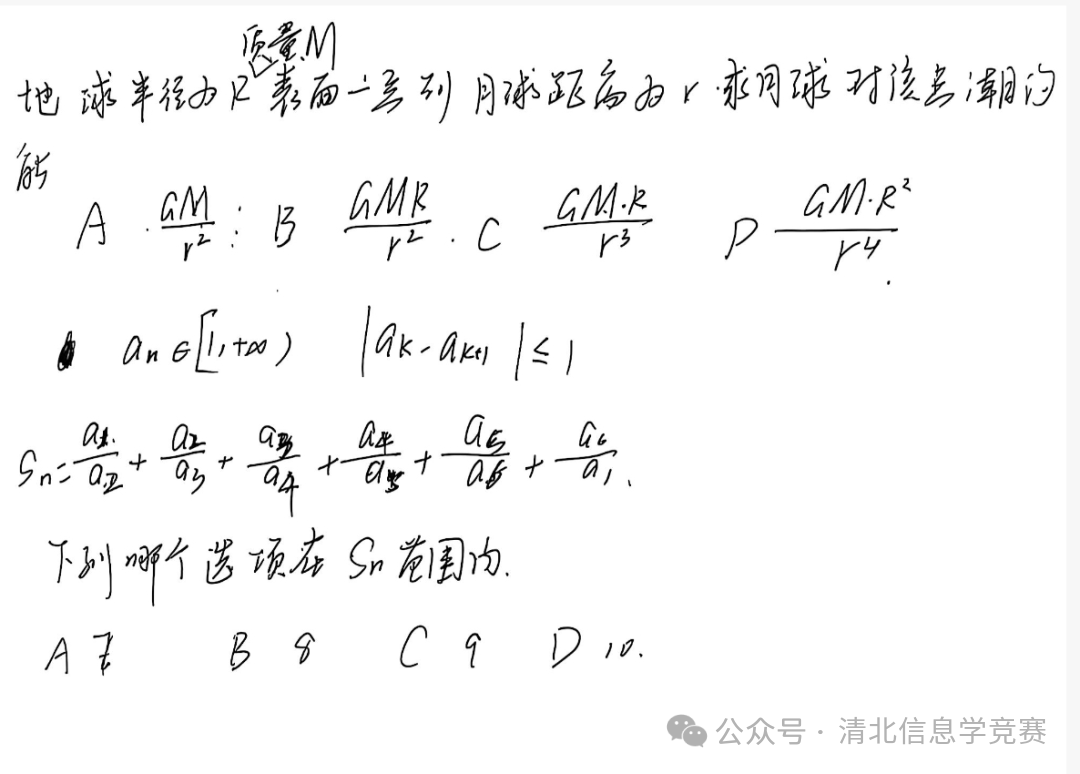 质量M
地球半径为R 表面一点到月球距离为r.求月球对该点潮汐
能
A. GM/r² : B GMR/r² . C GM.R/r³ D GM.R²/r⁴.
aₙ∈[1,+∞) |aₖ-aₖ₊₁|≤1
Sₙ=a₁/a₂+a₂/a₃+a₃/a₄+a₄/a₅+a₅/a₆+a₆/a₁.
下列哪个选项在Sₙ范围内.
A 7 B 8 C 9 D 10.
公众号·清北信息学竞赛